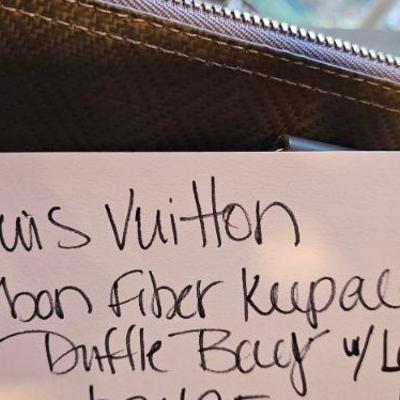 uis Vuitton
bon Fiber Kupac
Duffle Bag w/L